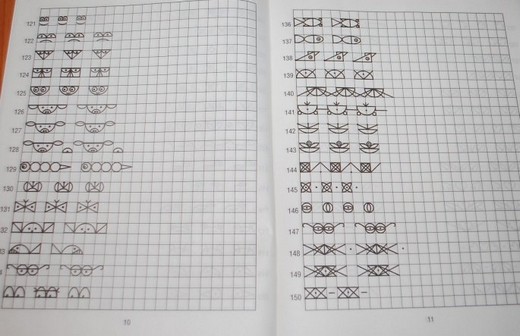 121
122
123
124
125
126
127
128
129
130
131
32
33
10
136
137
138
139
140
141
142
143
144
145
146
147
148
149
150
11